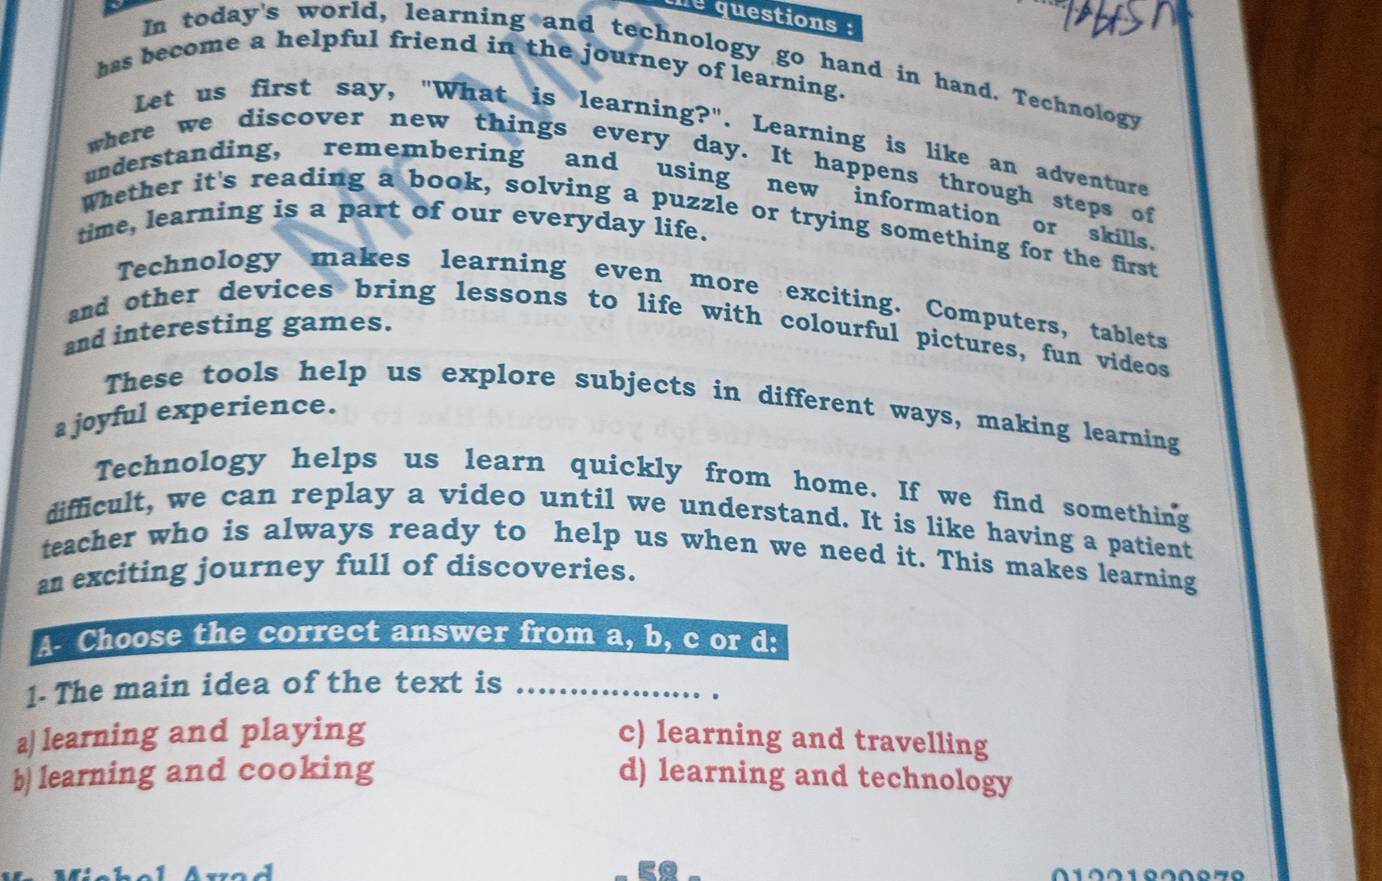 questions :
In today's world, learning and technology go hand in hand. Technology
has become a helpful friend in the journey of learning.
Let us first say, "What is learning?". Learning is like an adventure
where we discover new things every day. It happens through steps of
understanding, remembering and using new information or skills.
Whether it's reading a book, solving a puzzle or trying something for the first
time, learning is a part of our everyday life.
Technology makes learning even more exciting. Computers, tablets
and other devices bring lessons to life with colourful pictures, fun videos
and interesting games.
These tools help us explore subjects in different ways, making learning
a joyful experience.
Technology helps us learn quickly from home. If we find something
difficult, we can replay a video until we understand. It is like having a patient
teacher who is always ready to help us when we need it. This makes learning
an exciting journey full of discoveries.
A- Choose the correct answer from a, b, c or d:
1- The main idea of the text is .................. .
a) learning and playing
c) learning and travelling
b) learning and cooking
d) learning and technology
- 58 -